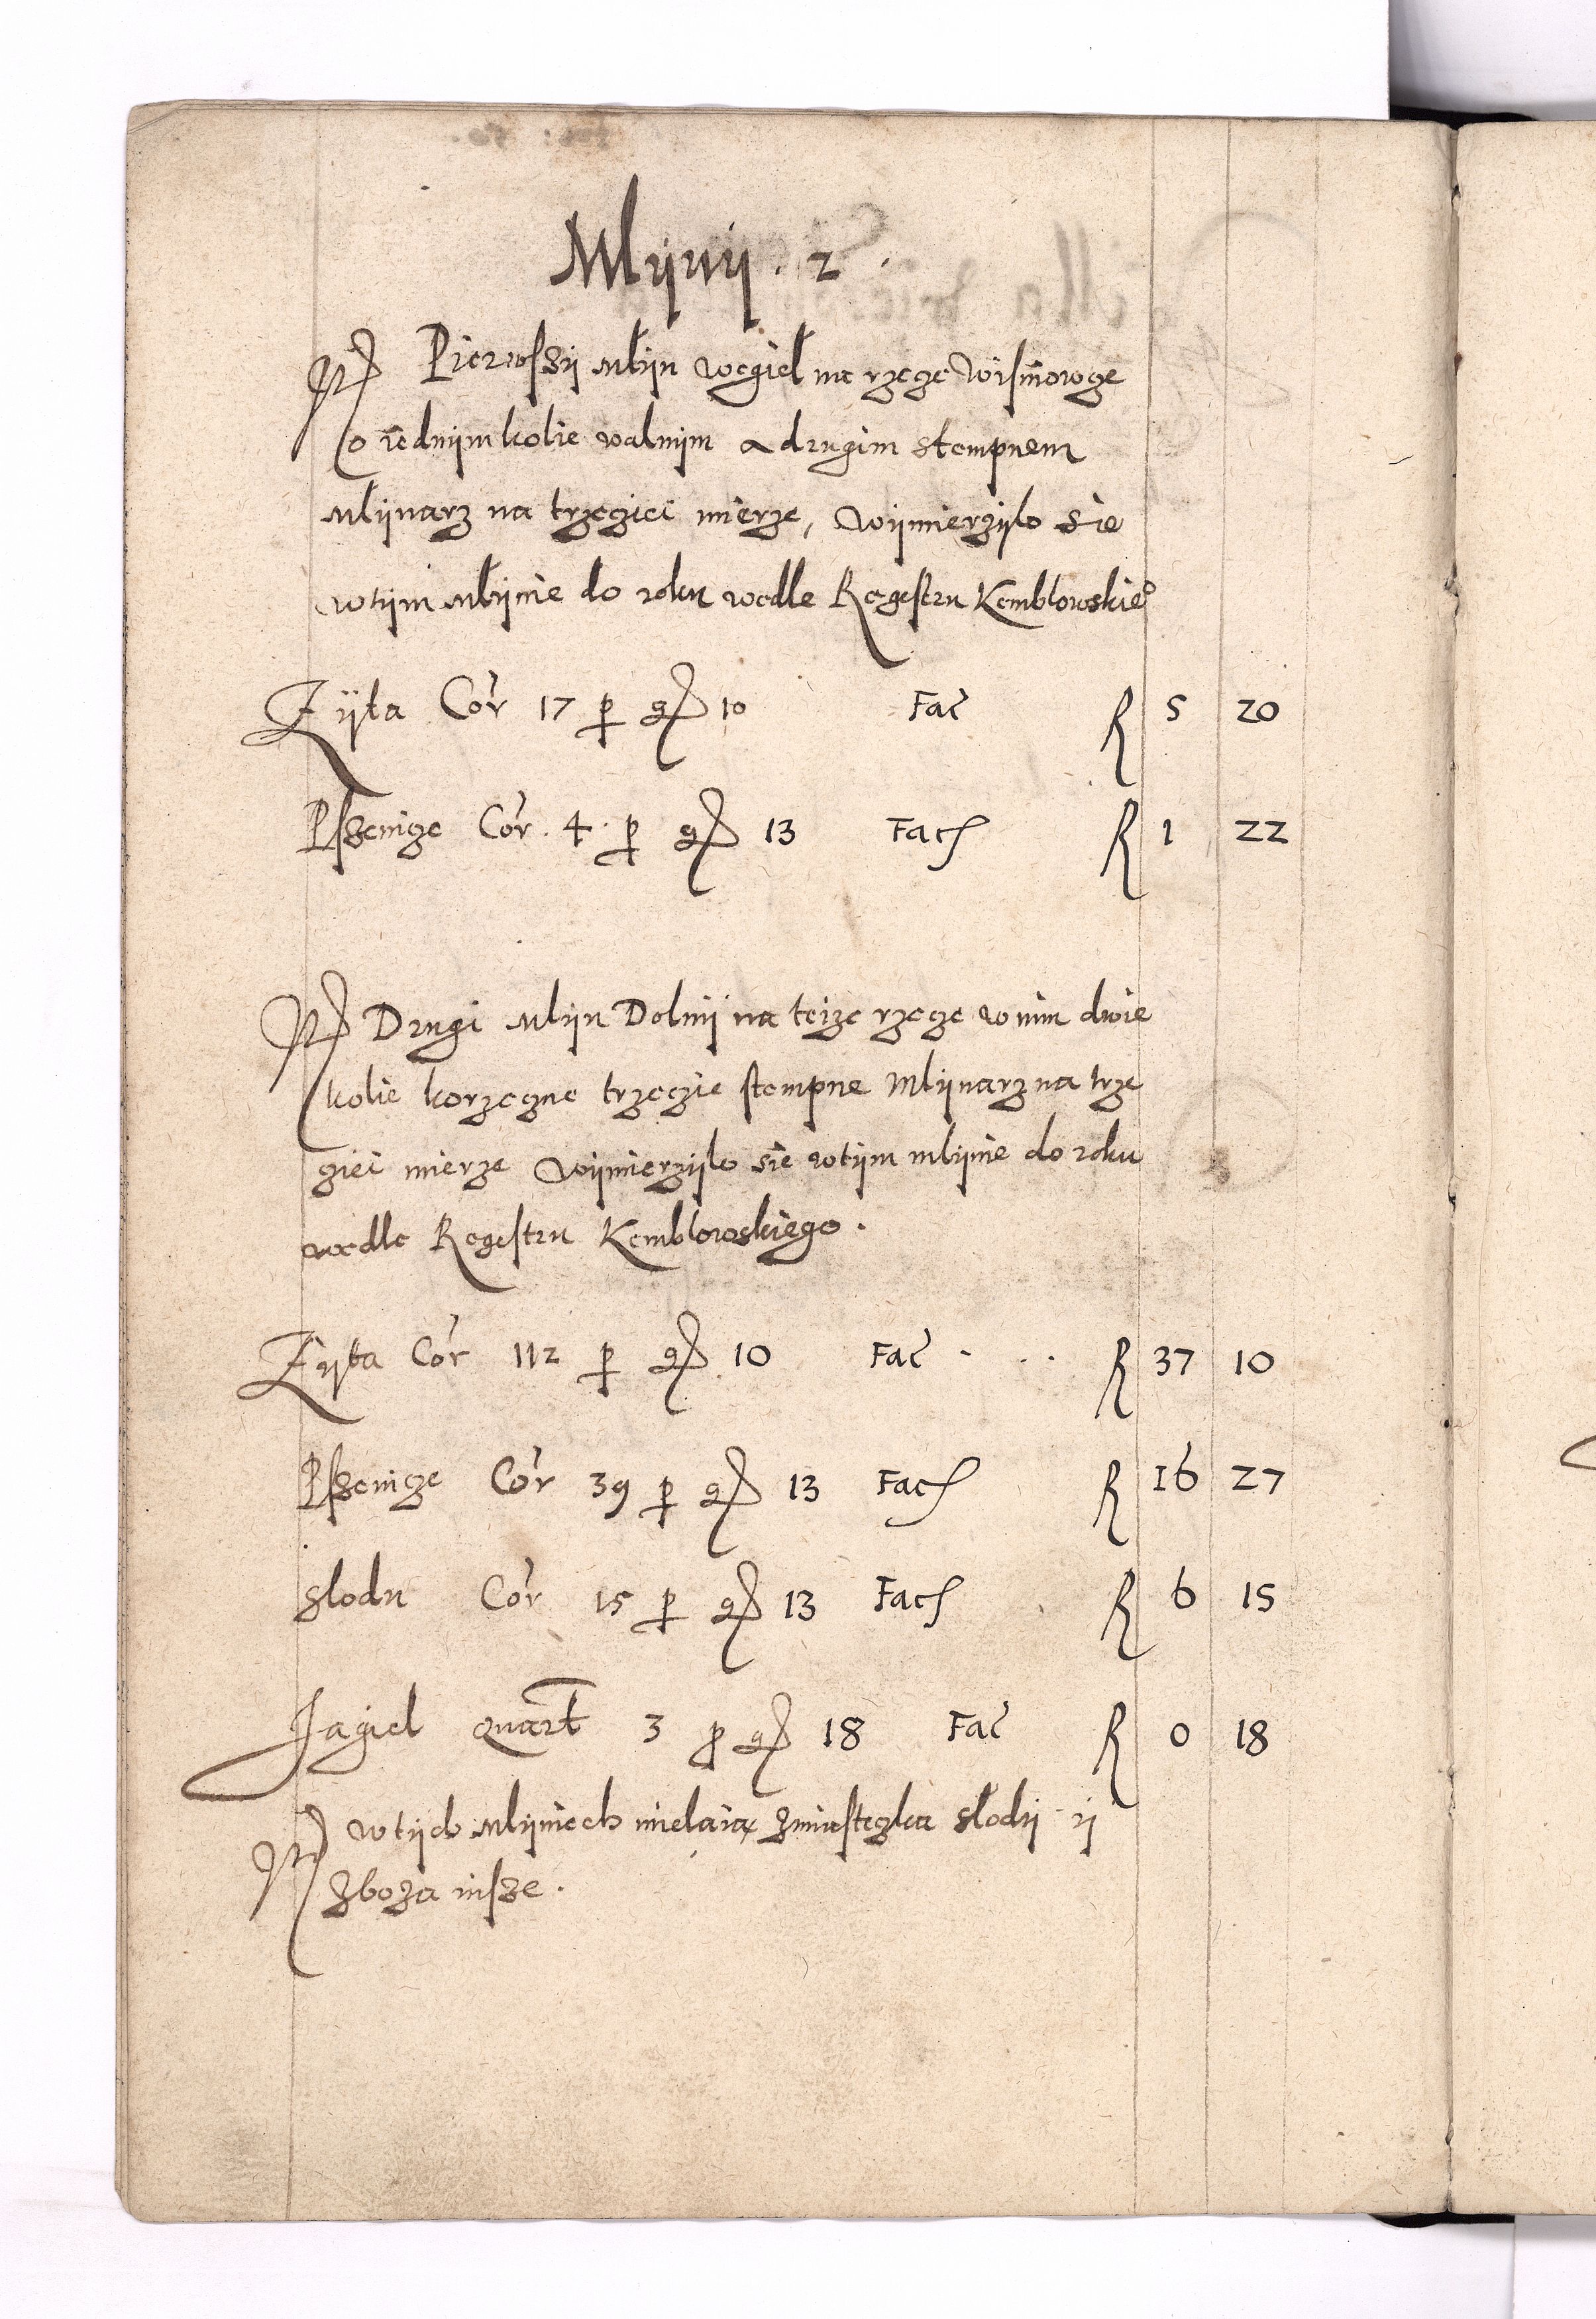 Mlijnij . 2 .
Jt Pierwsszij mlijn wegiel na rzecze Wisniowcze
o iednijm kolie walnijm a drugim stempnem
mlijnarz na trzeciei mierze, wijmierzijlo sie
wtijm mlijnie do roku wedle Regestru Kemblowskie°
Zijta Cor 17 p g 10 Fac R 5 20
Psszenicze Cor . 4 . p g 13 Fac R 1 22
Jt Drugi mlijn Dolnij na teize rzecze w nim dwie
kolie korzeczne trzeczie stempne Mlijnarz na trze
cziei mierze wijmierzijlo sie wtijm mlijnie do roku
wedle Regestru Kemblowskiego .
Zijta Cor 112 p g 10 Fac R 37 10
Psszenicze Cor 39 p g 13 Fac R 16 27
slodu Cor 15 p g 13 Fac R 6 15
Jagiel quart 3 p g 18 Fac R 0 18
Jt wtijch mlijniech mielaią zmiasteczka slodij ij
zboza insze .